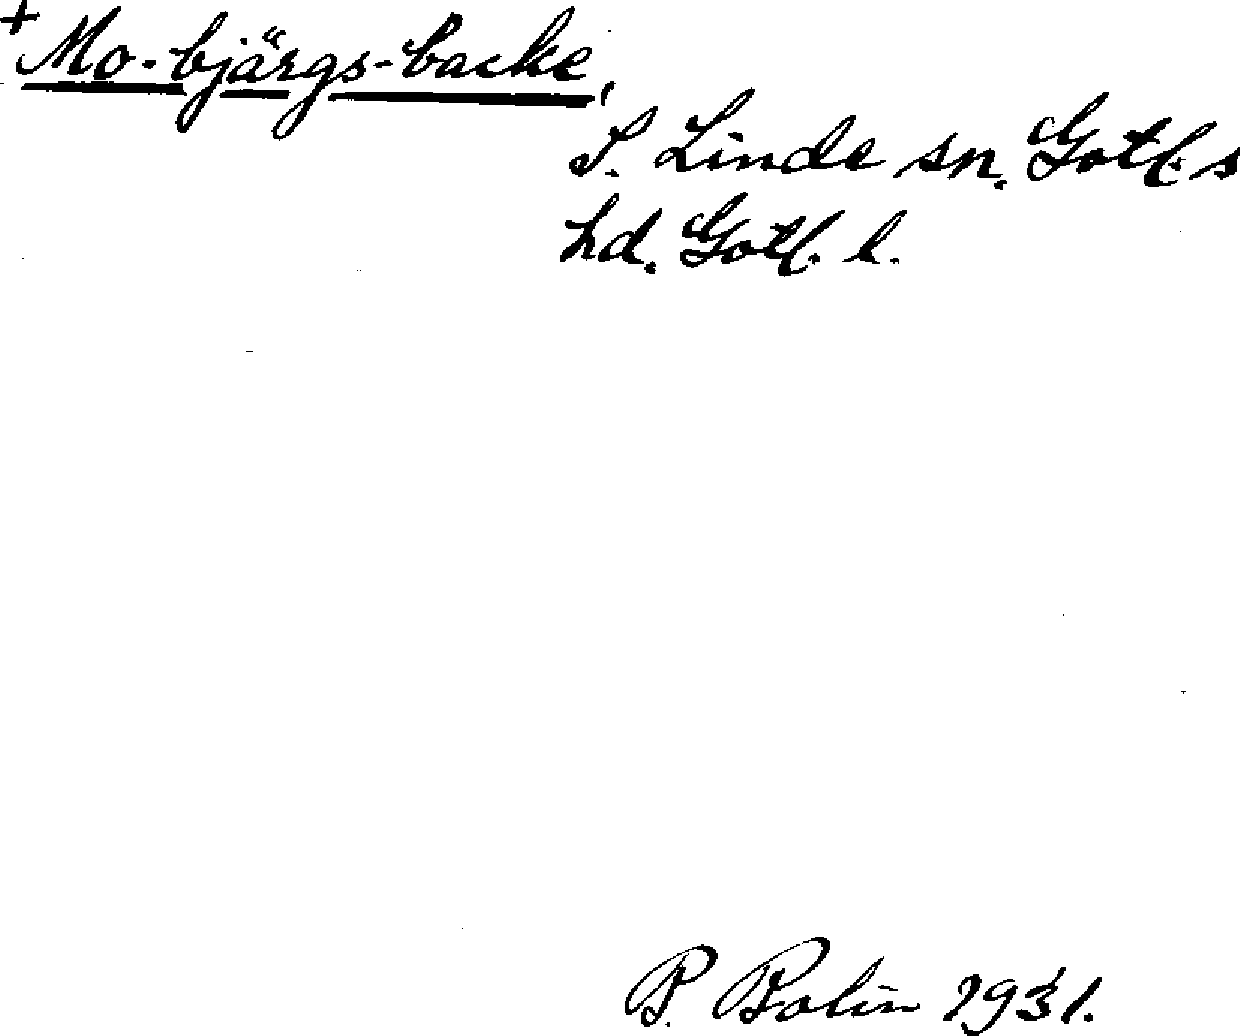 + Mo-bjärgs-backe,
S. Linde sn. Gotl. s
hd. Gotl. l.
P. Bolin 1931.